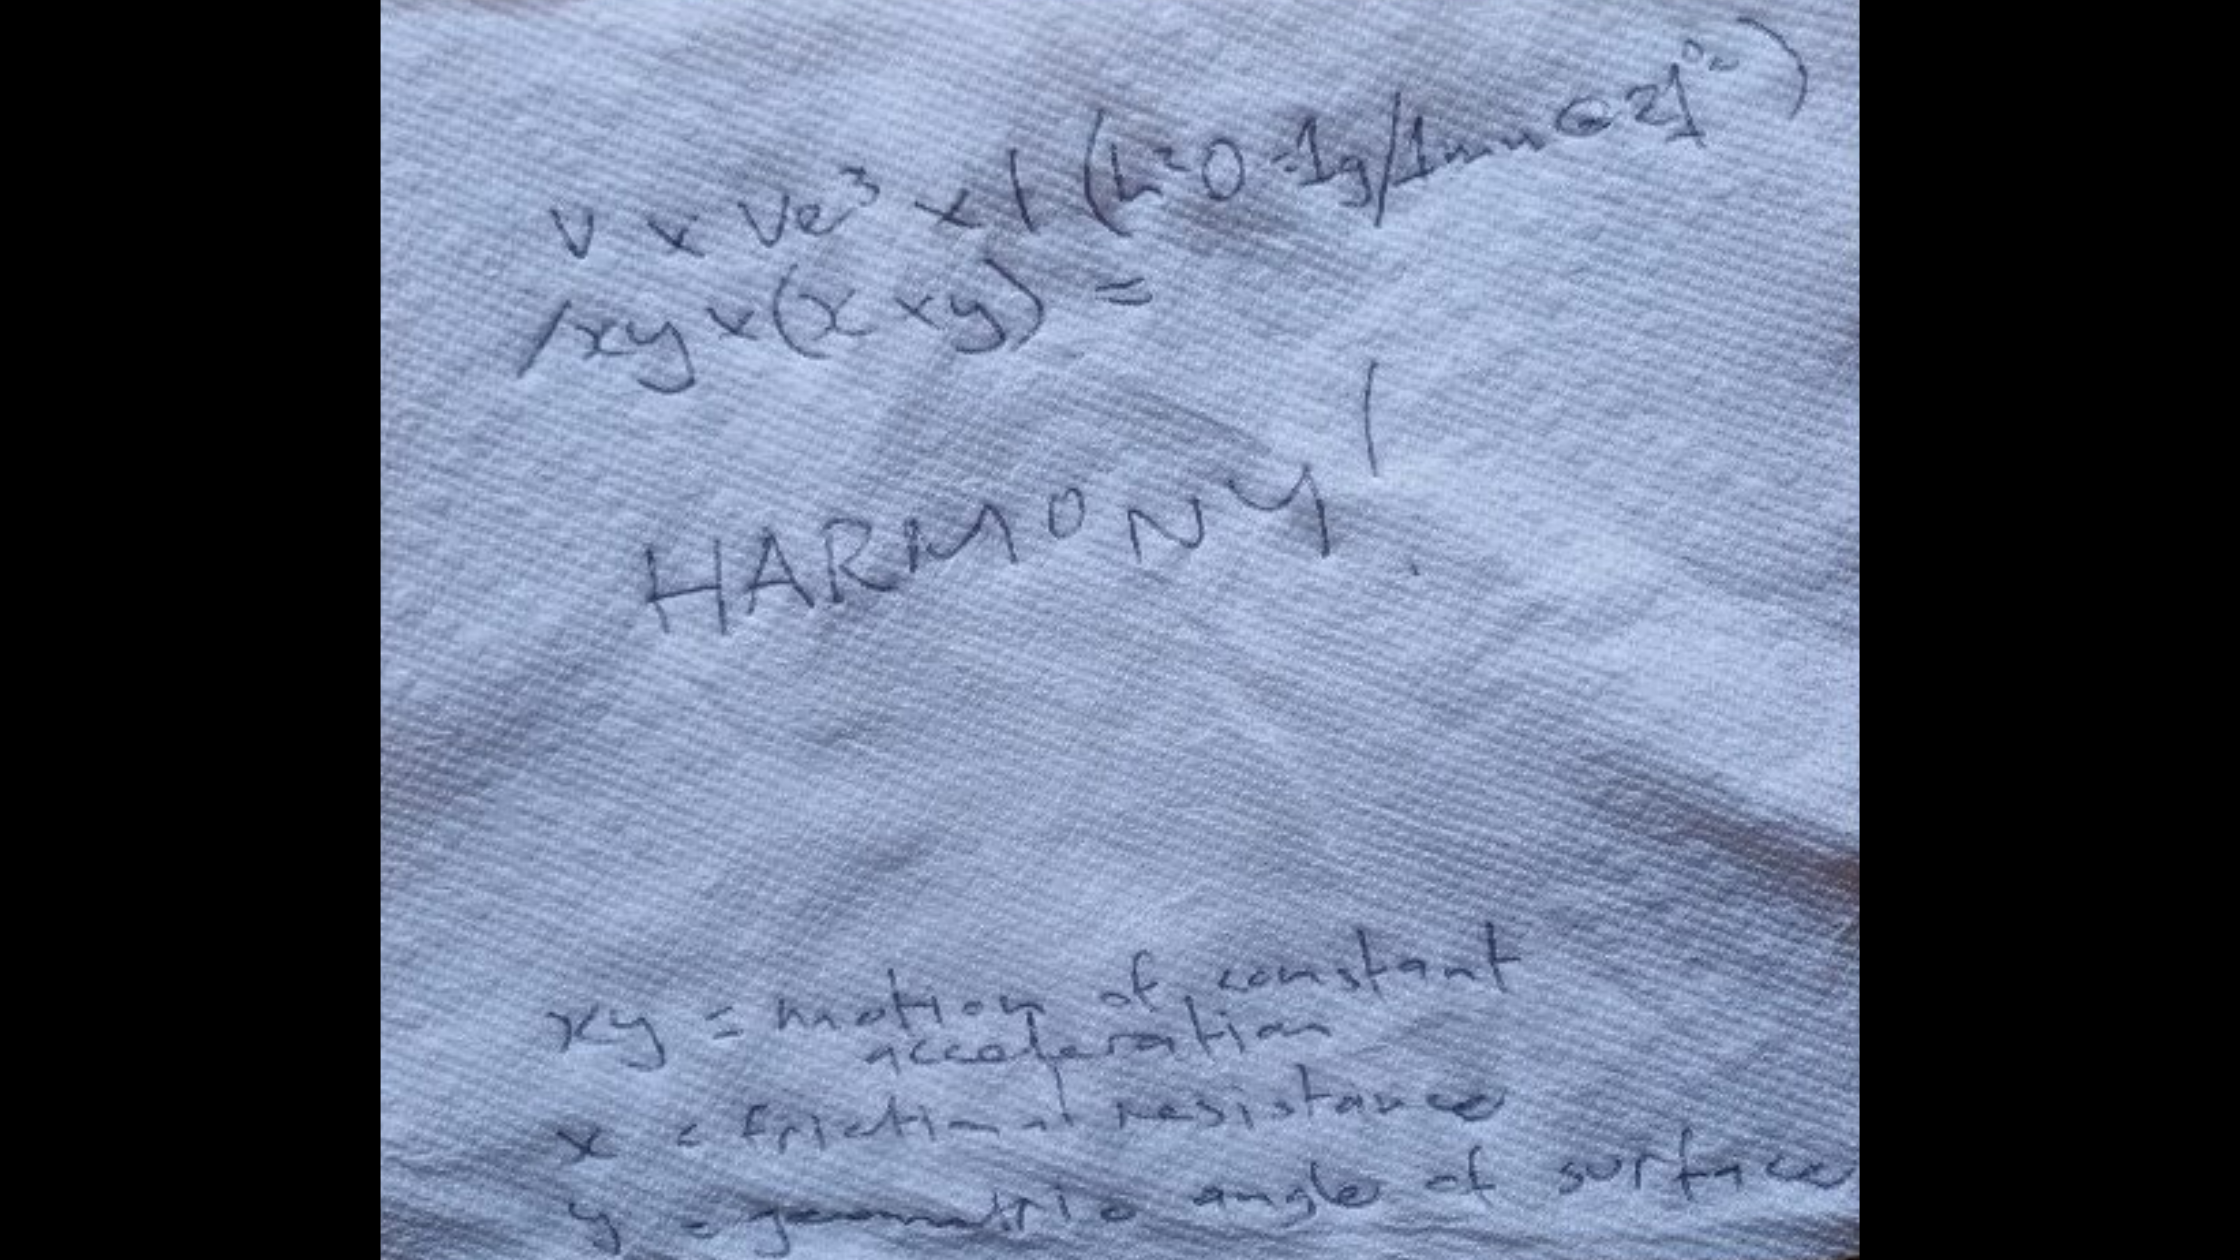 V x Ve³ x 1 (H²O = 1g/1mm @ 21°c)
/xy x (x x y) =
HARMONY!
xy = motion of constant
acceleration
x = frictional resistance
y = geometric angle of surface